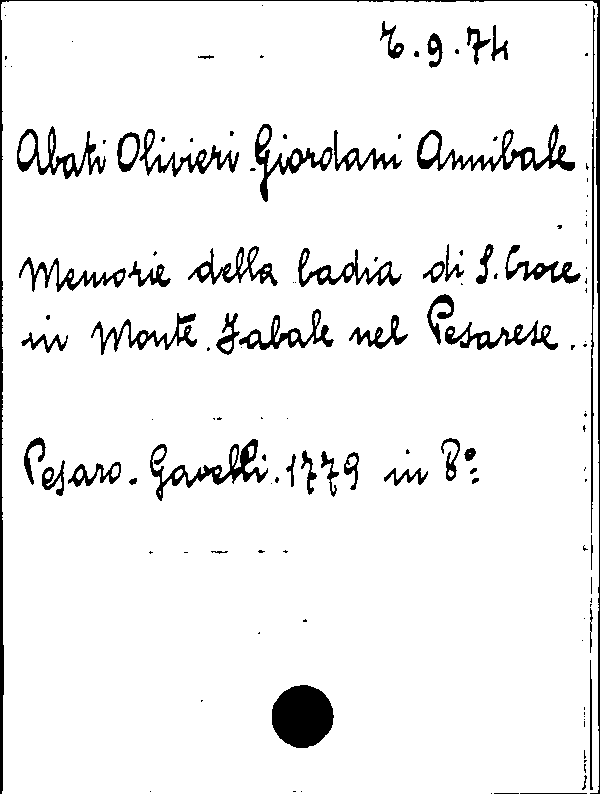 7.9.74
Abati Olivieri Giordani Annibale
Memorie della badia di S. Croce
in Monte Fabale nel Pesarese.
Pesaro - Gavelli. 1779 in 8°: